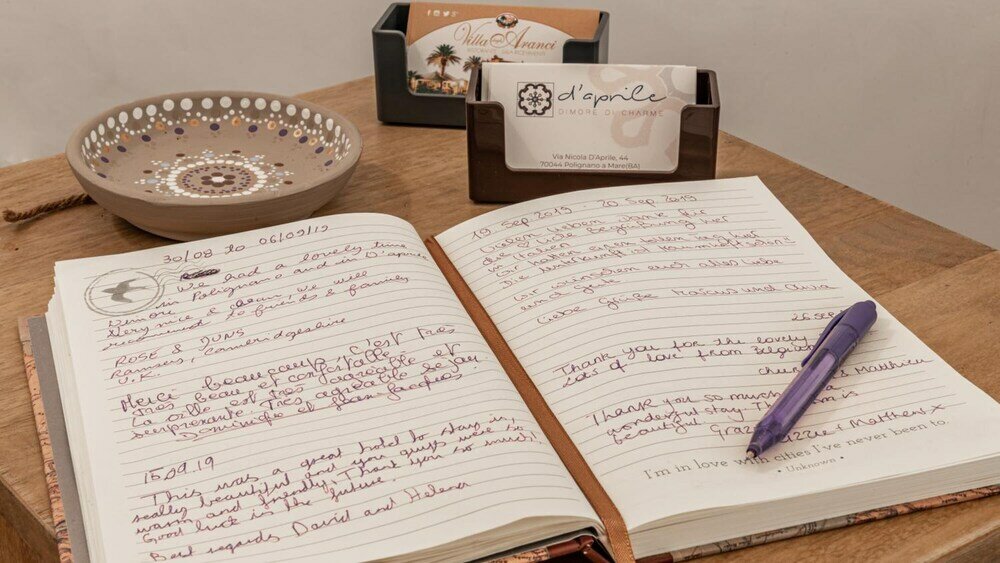 Villa degli Aranci
d'aprile
DIMORE DI CHARME
Via Nicola D'Aprile, 44
70044 Polignano a Mare(BA)
30/08 to 06/09/19
We had a lovely time
in Polignano and in D'aprile
Dimore. 
Very nice & clean we will
recommend to friends & family
ROSE & JUNS
Ramsey, Cambridgeshire
U.K.
Merci beaucoup c'est très
très beau et confortable
La ville est très agréable et
surprenante. Très agréable séjour
Dominique et Jean Jacques
15.09.19
This was a great hotel to stay in,
really beautiful and you guys were so
warm and friendly, Thank you so much!
Good luck in the future.
Best regards David and Helena
19 Sep 2019 - 20 Sep 2019
Lieben Dank für
die Liebe
in Italien
Wir hatten einen tollen
die Unterkunft ist
Wir wünschen euch alles Liebe
und Gute
Liebe Grüße Marcus und
26 sep
Thank you for the lovely
Lots of love from Belgium
Matthieu
Thank you so much
wonderful stay. The is
beautiful. + Matthew x
I'm in love with cities I've never been to.
• Unknown •